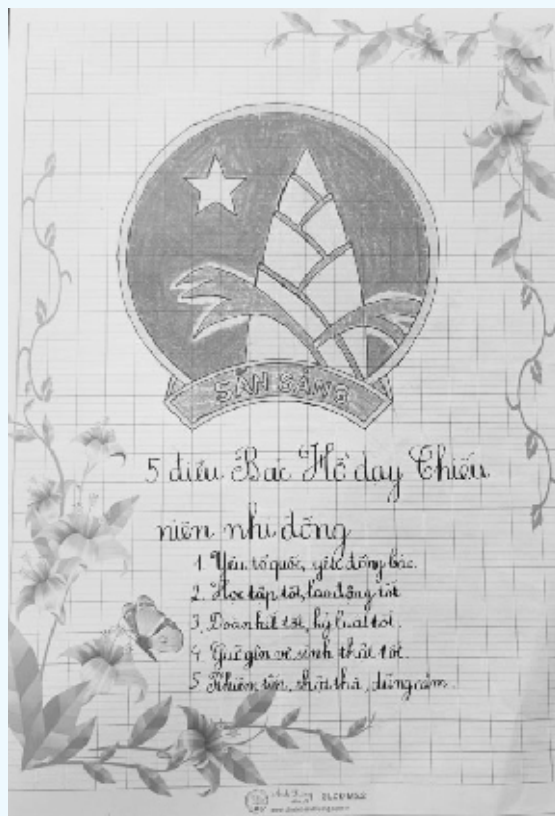 SẴN SÀNG
5 điều Bác Hồ dạy Thiếu
niên nhi đồng
1. Yêu tổ quốc, yêu đồng bào.
2. Học tập tốt, lao động tốt
3. Đoàn kết tốt, kỷ luật tốt.
4. Giữ gìn vệ sinh thật tốt.
5. Khiêm tốn, thật thà, dũng cảm.